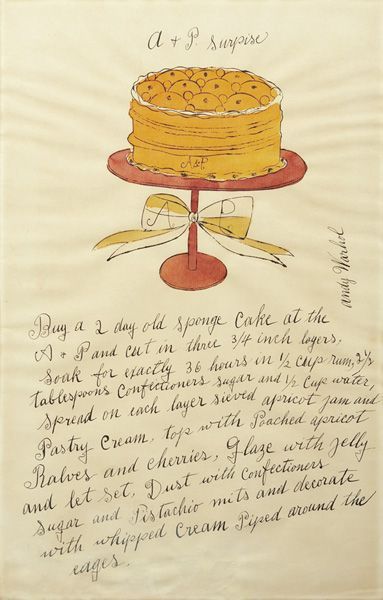 A & P. surpise
A&P.
A P.
andy Warhol
Buy a 2 day old sponge cake at the
A & P and cut in three 3/4 inch layers,
soak for exactly 36 hours in 1/2 cup rum,
tablespoons confectioners sugar and 1/2 cup water,
spread on each layer sieved apricot jam and
Pastry Cream, top with Poached apricot
Ralves and cherries, Glaze with jelly
and let set. Dust with confectioners
sugar and Pistachio nuts and decorate
with whipped cream Piped around the
eages.